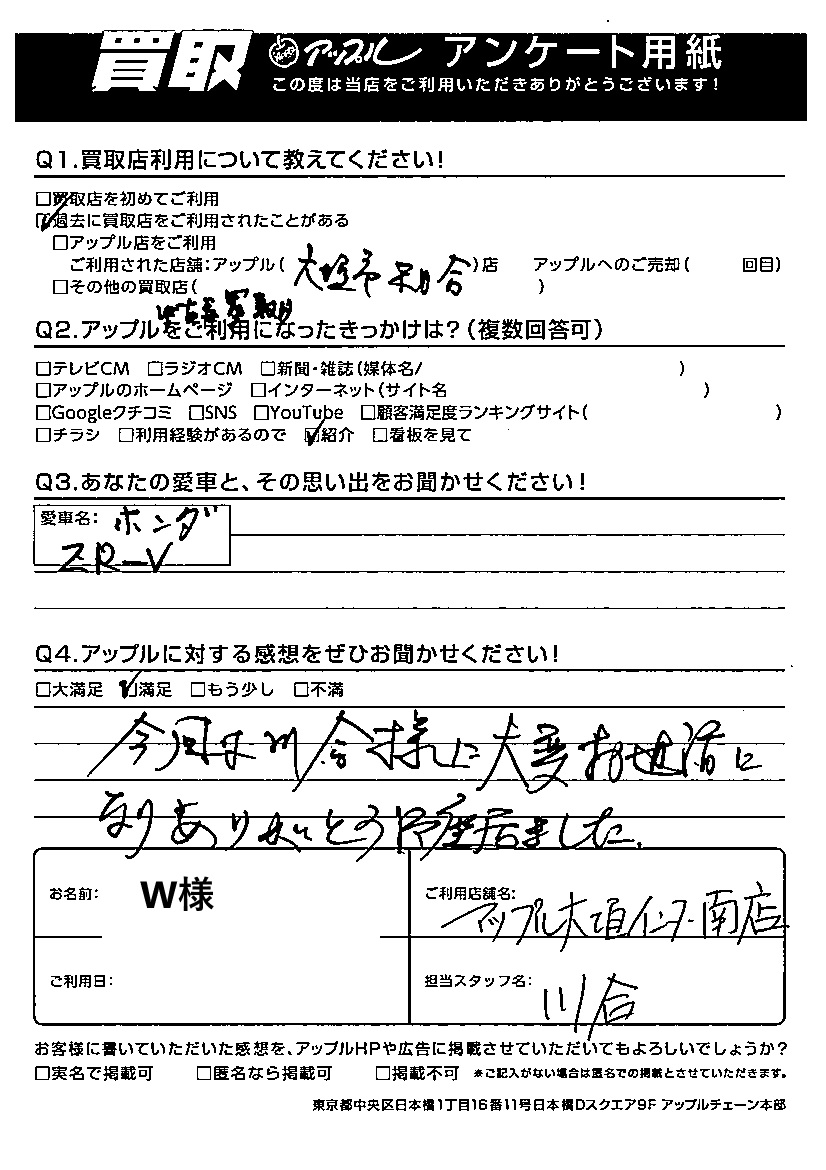 買取 アップル アンケート用紙
この度は当店をご利用いただきありがとうございます!
Q1.買取店利用について教えてください!
□買取店を初めてご利用
☑過去に買取店をご利用されたことがある
□アップル店をご利用
ご利用された店舗:アップル( 大垣市 )店 アップルへのご売却( 回目)
□その他の買取店( )
Q2.アップルをご利用になったきっかけは?(複数回答可)
□テレビCM □ラジオCM □新聞・雑誌(媒体名/ )
□アップルのホームページ □インターネット(サイト名 )
□Googleクチコミ □SNS □YouTube □顧客満足度ランキングサイト( )
□チラシ □利用経験があるので ☑紹介 □看板を見て
Q3.あなたの愛車と、その思い出をお聞かせください!
愛車名: ホンダ
ZR-V
Q4.アップルに対する感想をぜひお聞かせください!
□大満足 ☑満足 □もう少し □不満
今回は川合様に大変お世話に
なりありがとう御座居ました.
お名前: W様
ご利用店舗名:
アップル大垣インター南店
ご利用日:
担当スタッフ名: 川合
お客様に書いていただいた感想を、アップルHPや広告に掲載させていただいてもよろしいでしょうか?
□実名で掲載可 □匿名なら掲載可 □掲載不可 ※ご記入がない場合は匿名での掲載とさせていただきます。
東京都中央区日本橋1丁目16番11号日本橋Dスクエア9F アップルチェーン本部